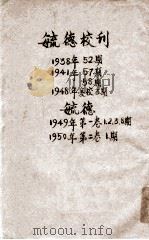 毓德校刊
1938年 52期
1941年 57期
58期
1948年复校3期
毓德
1949年第一卷1.2.3.6期
1950年第二卷1期